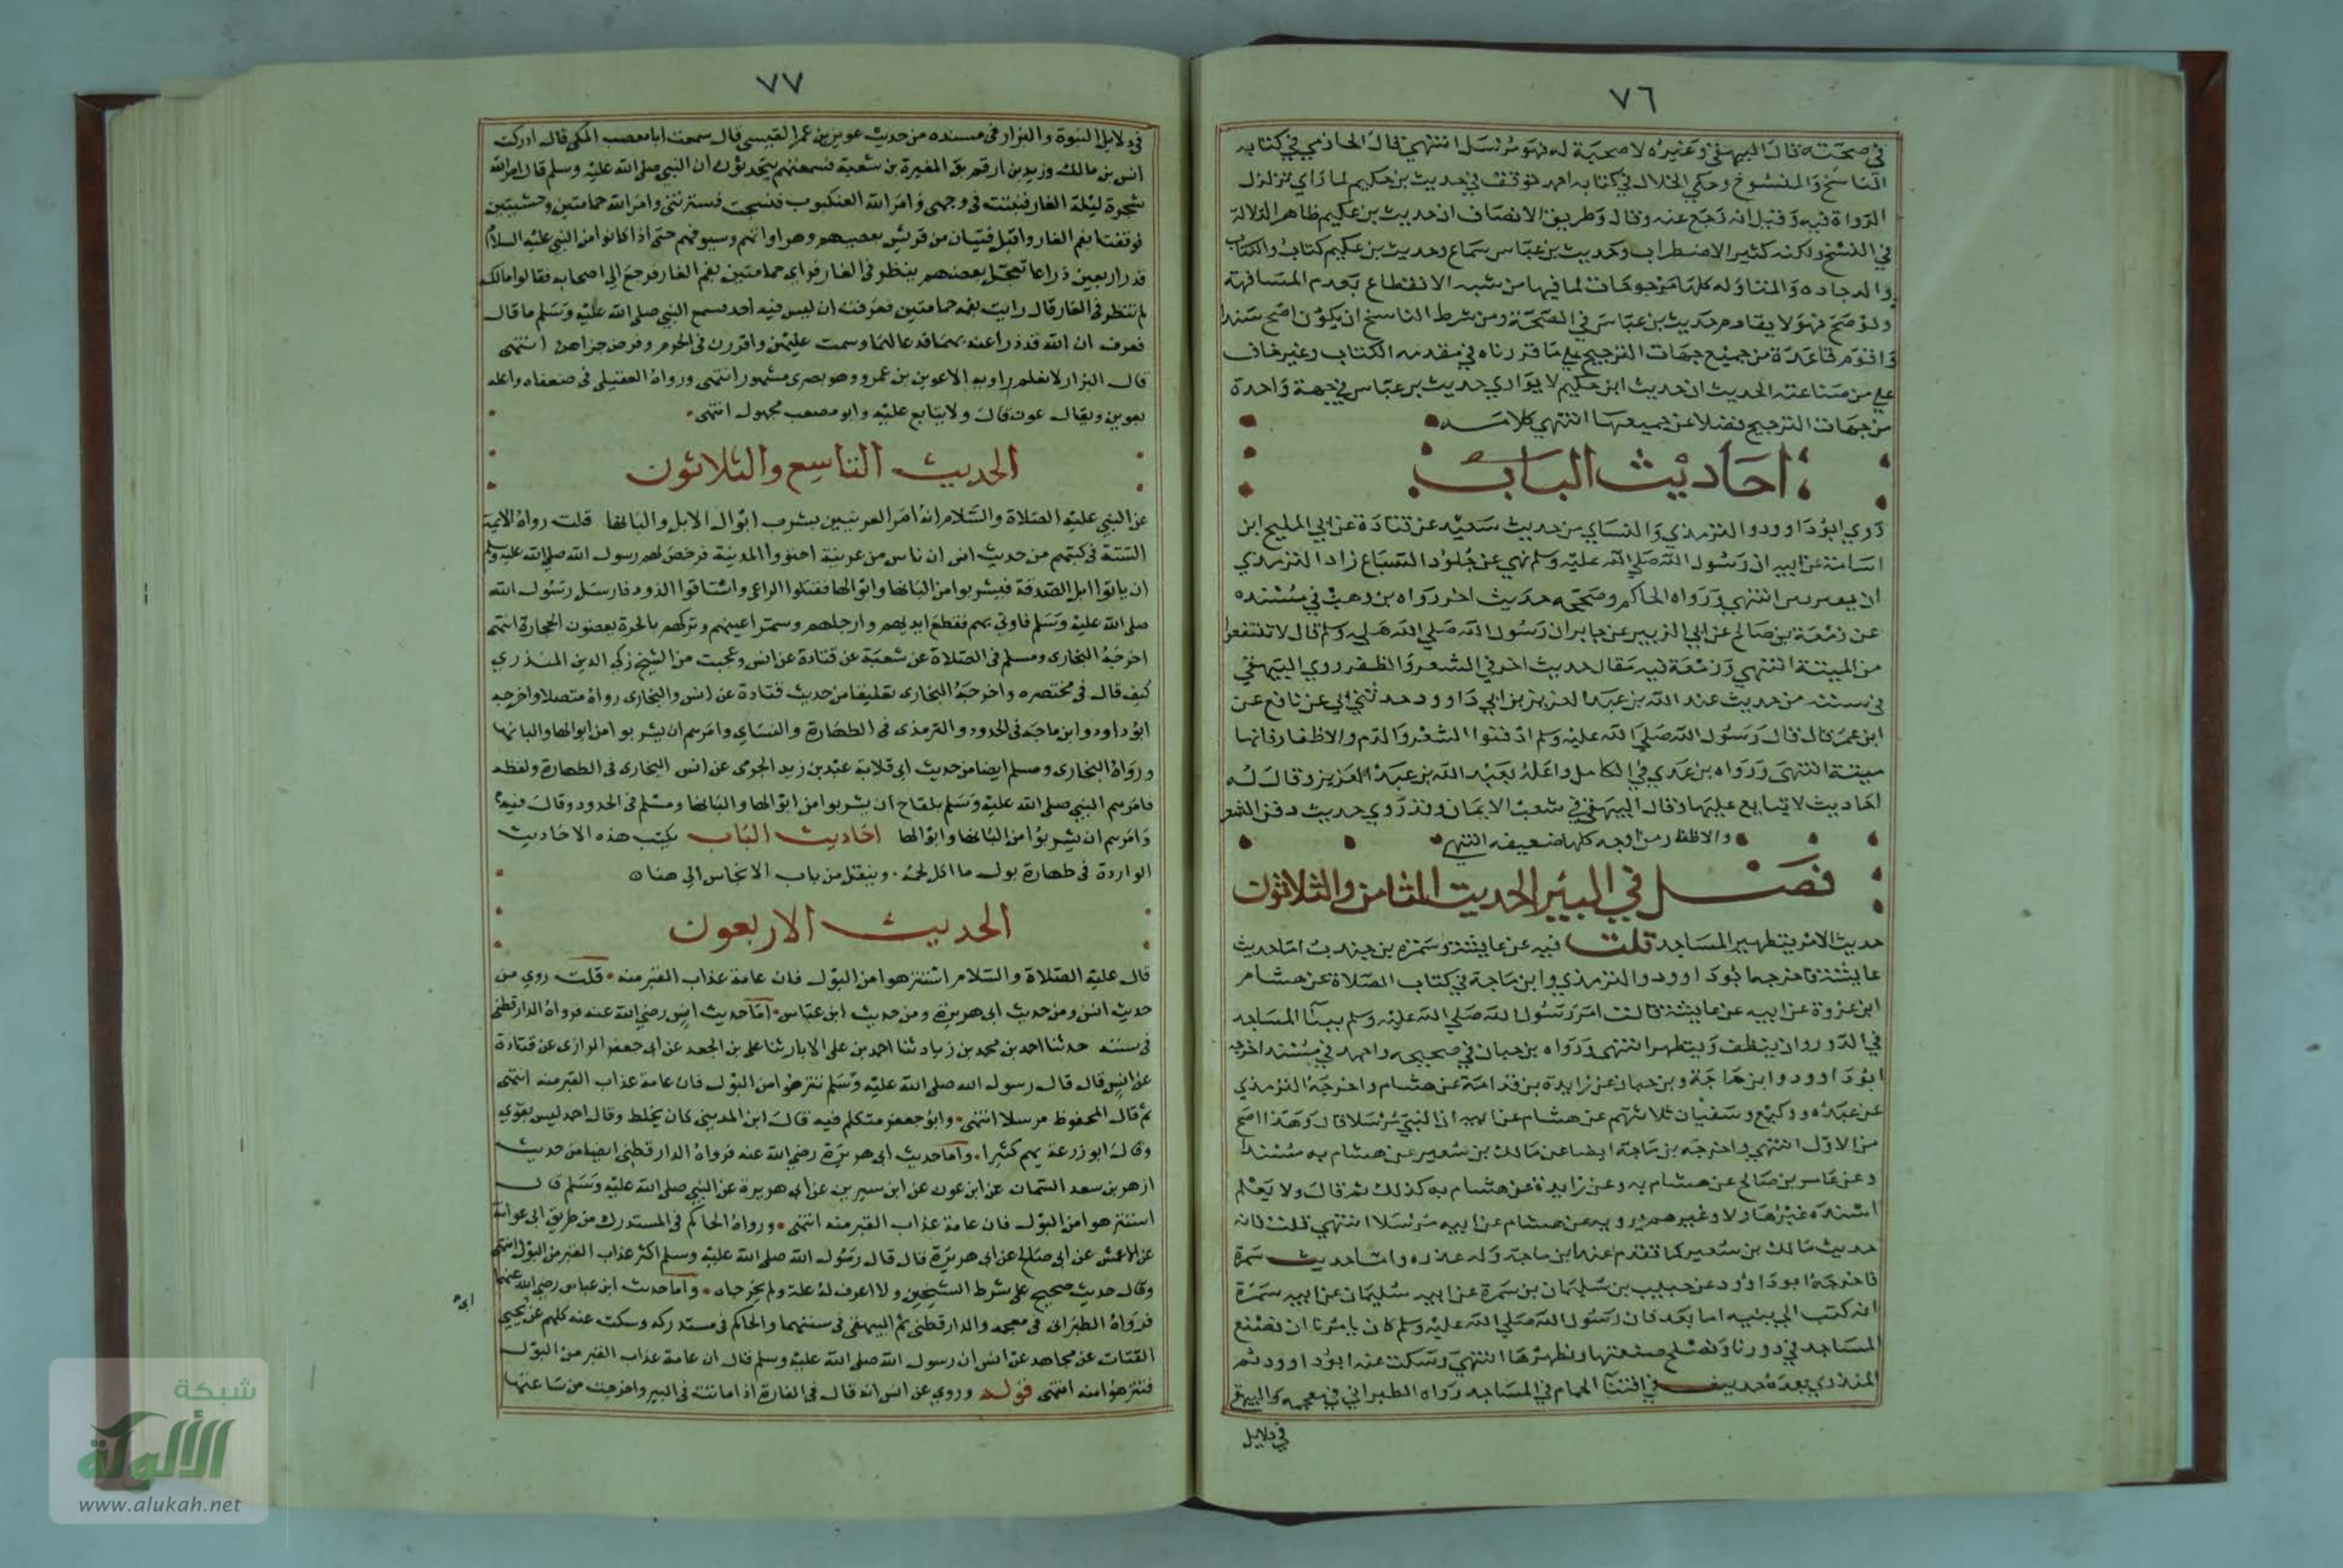 ٧٦
في صحته قال البيهقي وغيره لا صحبة له فهو مرسل انتهي قال الحازمي في كتابه
الناسخ والمنسوخ وحكي الخلال في كتابه احمد توقف في حديث بن حكيم لما راي تزلزل
الرواة فيه وقيل انه رجع عنه وقال وطريق الانصاف ان حديث بن عكيم ظاهر الدلالة
في النسخ ولكنه كثير الاضطراب وحديث بن عباس سماع وحديث بن عكيم كتاب والكتاب
والوجاده والمناوله كلها مرجوحات لما فيها من شبه الانقطاع بعدم المسافهة
ولو صح فهو لا يقاوم حديث بن عباس في الصحة ومن شرط الناسخ ان يكون اصح سندا
واقوم قاعدة من جميع جهات الترجيح علي ما قررناه في مقدمه الكتاب وغير خاف
علي من صناعته الحديث ان حديث ابن حكيم لا يوازي حديث بن عباس في جهة واحدة
من جهات الترجيح فضلا عن جميعها انتهي كلامه
احاديث الباب
روي ابو داوود والترمذي والنساي من حديث سعيد عن قتادة عن ابي المليح ابن
اسامة عن ابيه ان رسول الله صلي الله عليه وسلم نهي عن جلود السباع زاد الترمذي
ان يفترش انتهي ورواه الحاكم وصححه حديث اخر رواه بن وهب في مسنده
عن زمعة بن صالح عن ابي الزبير عن جابر ان رسول الله صلي الله عليه وسلم قال لا تنتفعوا
من الميتة انتهي وزمعة فيه مقال حديث اخر في الشعر والظفر روي البيهقي
في سننه من حديث عبد الله بن عبد العزيز بن ابي داوود حدثني ابي عن نافع عن
ابن عمر قال قال رسول الله صلي الله عليه وسلم ادفنوا الشعر والدم والاظفار فانها
ميتة انتهي ورواه بن عدي في الكامل واعله بعبد الله بن عبد العزيز وقال له
احاديث لا يتابع عليها وقال البيهقي في شعب الايمان وقد روي حديث دفن الشعر
والاظفار من اوجه كلها ضعيفه انتهي
فصل في البير الحديث الثامن والثلاثون
حديث الامر بتطهير المساجد قلت فيه عن عايشة وسمرة بن جندب اما حديث
عايشة فاخرجه ابو داوود والترمذي وابن ماجة في كتاب الصلاة عن هشام
ابن عروة عن ابيه عن عايشة قالت امر رسول الله صلي الله عليه وسلم ببنآ المساجد
في الدور وان ينظف ويتطهر انتهي ورواه بن حبان في صحيحه واحمد في مسند اخرجه
ابو داوود وابن ماجة وبن حبان عن زايدة بن قدامة عن هشام واخرجه الترمذي
عن عبده ووكيع وسفيان ثلاثتهم عن هشام عن ابيه ان النبي مرسلا قال وهذا اصح
من الاول انتهي واخرجه بن ماجة ايضا عن مالك بن سعير عن هشام به مسندا
وعن عامر بن صالح عن هشام به وعن زايدة عن هشام به كذلك ثم قال ولا يعلم
اسنده غير هاولا وغيرهم يرويه عن هشام عن ابيه مرسلا انتهي قلت فانه
حديث مالك بن سعير كما تقدم عند ابن ماجة وله عذره واما حديث سمرة
فاخرجه ابو داوود عن حبيب بن سليمان بن سمرة عن ابيه سليمان عن ابيه سمرة
انه كتب الي بنيه اما بعد فان رسول الله صلي الله عليه وسلم كان يامرنا ان نصنع
المساجد في دورنا ونصلح صنعتها ونطهرها انتهي وسكت عنه ابو داوود ثم
المنذري بعده حديث في اقتنآ الحمام في المساجد رواه الطبراني في معجمه والبيهقي
في دلايل
٧٧
في دلايل النبوة والبزار في مسنده من حديث عوين بن عمرا القيسي قال سمعت ابا مصعب المكي قال ادركت
انس بن مالك وزيد بن ارقم بق المغيرة بن شعبة فسمعتهم يتحدثون ان النبي صلي الله عليه وسلم قال امر الله
شجرة ليلة الغار فنبتت في وجهي وامر الله العنكبوت فنسجت فسترتني وامر الله حمامتين وحشيتين
فوقفتا بفم الغار واقبل فتيان من قريش بعصيهم وهراواتهم وسيوفهم حتي اذا كانوا من النبي عليه السلام
قدر اربعين ذراعا تعجل بعضهم ينظر في الغار فراي حمامتين بفم الغار فرجع الي اصحابه فقالوا مالك
لم تنظر في الغار قال رايت بفمه حمامتين فعرفت ان ليس فيه احد فسمع النبي صلي الله عليه وسلم ما قال
فعرف ان الله قد درا عنه بهما فدعا لهما وسمت عليهن واقررن في الحرم وفرض جزاهن انتهي
قال البزار لا نعلم راويه الا عوين بن عمرو وهو بصري مشهور انتهي ورواه العقيلي في ضعفاه واعله
بعوين ويقال عون قال ولا يتابع عليه وابو مصعب مجهول انتهي
الحديث التاسع والثلاثون
عن النبي عليه الصلاة والسلام انه امر العرنيين بشرب ابوال الابل والبانها قلت رواه الايمة
الستة في كتبهم من حديث انس ان ناس من عرينة اجتووا المدينة فرخص لهم رسول الله صلي الله عليه وسلم
ان ياتوا ابل الصدقة فيشربوا من البانها وابوالها فقتلوا الراعي واستاقوا الذود فارسل رسول الله
صلي الله عليه وسلم فاوتي بهم فقطع ايديهم وارجلهم وسمر اعينهم وتركهم بالحرة يعضون الحجارة انتهي
اخرجه البخاري ومسلم في الصلاة عن شعبة عن قتادة عن انس وعجبت من الشيخ زكي الدين المنذري
كيف قال في مختصره واخرجه البخاري تعليقا من حديث قتادة عن انس والبخاري رواه متصلا واخرجه
ابو داود وابن ماجه في الحدود والترمذي في الطهارة والنساي وامرهم ان يشربوا من ابوالها والبانها
ورواه البخاري ومسلم ايضا من حديث ابي قلابة عبد بن زيد الجرمي عن انس البخاري في الطهارة ولفظه
فامرهم النبي صلي الله عليه وسلم بلقاح ان يشربوا من ابوالها والبانها ومسلم في الحدود وقال فيه
وامرهم ان يشربوا من البانها وابوالها احاديث الباب يكتب هذه الاحاديث
الواردة في طهارة بول ما اكل لحمه وينقل من باب الانجاس الي هنا
الحديث الاربعون
قال عليه الصلاة والسلام استنزهوا من البول فان عامة عذاب القبر منه قلت روي من
حديث انس ومن حديث ابي هريرة ومن حديث ابن عباس اما حديث انس رضي الله عنه فرواه الدارقطني
في سننه حدثنا احمد بن محمد بن زياد ثنا احمد بن علي الابار ثنا علي بن الجعد عن ابي جعفر الرازي عن قتادة
عن انس قال قال رسول الله صلي الله عليه وسلم تنزهوا من البول فان عامة عذاب القبر منه انتهي
ثم قال المحفوظ مرسلا انتهي وابو جعفر متكلم فيه قال ابن المديني كان يخلط وقال احمد ليس بقوي
وقال ابو زرعة يهم كثيرا واما حديث ابي هريرة رضي الله عنه فرواه الدارقطني ايضا من حديث
ازهر بن سعد السمان عن ابن عون عن ابن سيرين عن ابي هريرة عن النبي صلي الله عليه وسلم قال
استنزهوا من البول فان عامة عذاب القبر منه انتهي ورواه الحاكم في المستدرك من طريق ابي عوانة
عن الاعمش عن ابي صالح عن ابي هريرة قال قال رسول الله صلي الله عليه وسلم اكثر عذاب القبر من البول انتهي
وقال حديث صحيح علي شرط الشيخين ولا اعرف له علة ولم يخرجاه واما حديث ابن عباس رضي الله عنهما
فرواه الطبراني في معجمه والدارقطني ثم البيهقي في سننهما والحاكم في مستدركه وسكت عنه كلهم عن يحيي
القتات عن مجاهد عن انس ان رسول الله صلي الله عليه وسلم قال ان عامة عذاب القبر من البول
فتنزهوا منه انتهي قوله وروي عن انس انه قال في الفارة اذا ماتت في البير واخرجت من ساعتها
ابي
شبكة
الألوكة
www.alukah.net